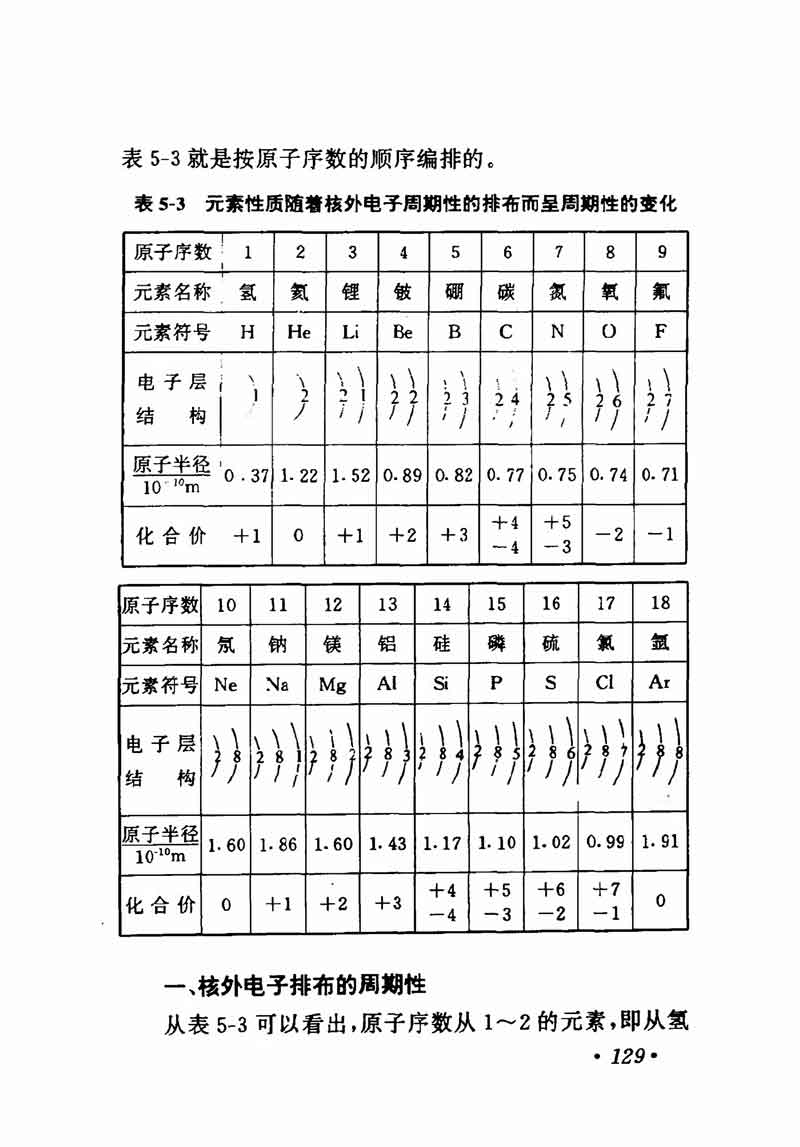 表 5-3 就是按原子序数的顺序编排的。
表 5-3 元素性质随着核外电子周期性的排布而呈周期性的变化
原子序数 1 2 3 4 5 6 7 8 9
元素名称 氢 氦 锂 铍 硼 碳 氮 氧 氟
元素符号 H He Li Be B C N O F
电子层 结构 1 2 2 1 2 2 2 3 2 4 2 5 2 6 2 7
原子半径 10⁻¹⁰m 0.37 1.22 1.52 0.89 0.82 0.77 0.75 0.74 0.71
化合价 +1 0 +1 +2 +3 +4 -4 +5 -3 -2 -1
原子序数 10 11 12 13 14 15 16 17 18
元素名称 氖 钠 镁 铝 硅 磷 硫 氯 氩
元素符号 Ne Na Mg Al Si P S Cl Ar
电子层 结构 2 8 2 8 1 2 8 2 2 8 3 2 8 4 2 8 5 2 8 6 2 8 7 2 8 8
原子半径 10⁻¹⁰m 1.60 1.86 1.60 1.43 1.17 1.10 1.02 0.99 1.91
化合价 0 +1 +2 +3 +4 -4 +5 -3 +6 -2 +7 -1 0
一、核外电子排布的周期性
从表 5-3 可以看出,原子序数从 1~2 的元素,即从氢
·129·